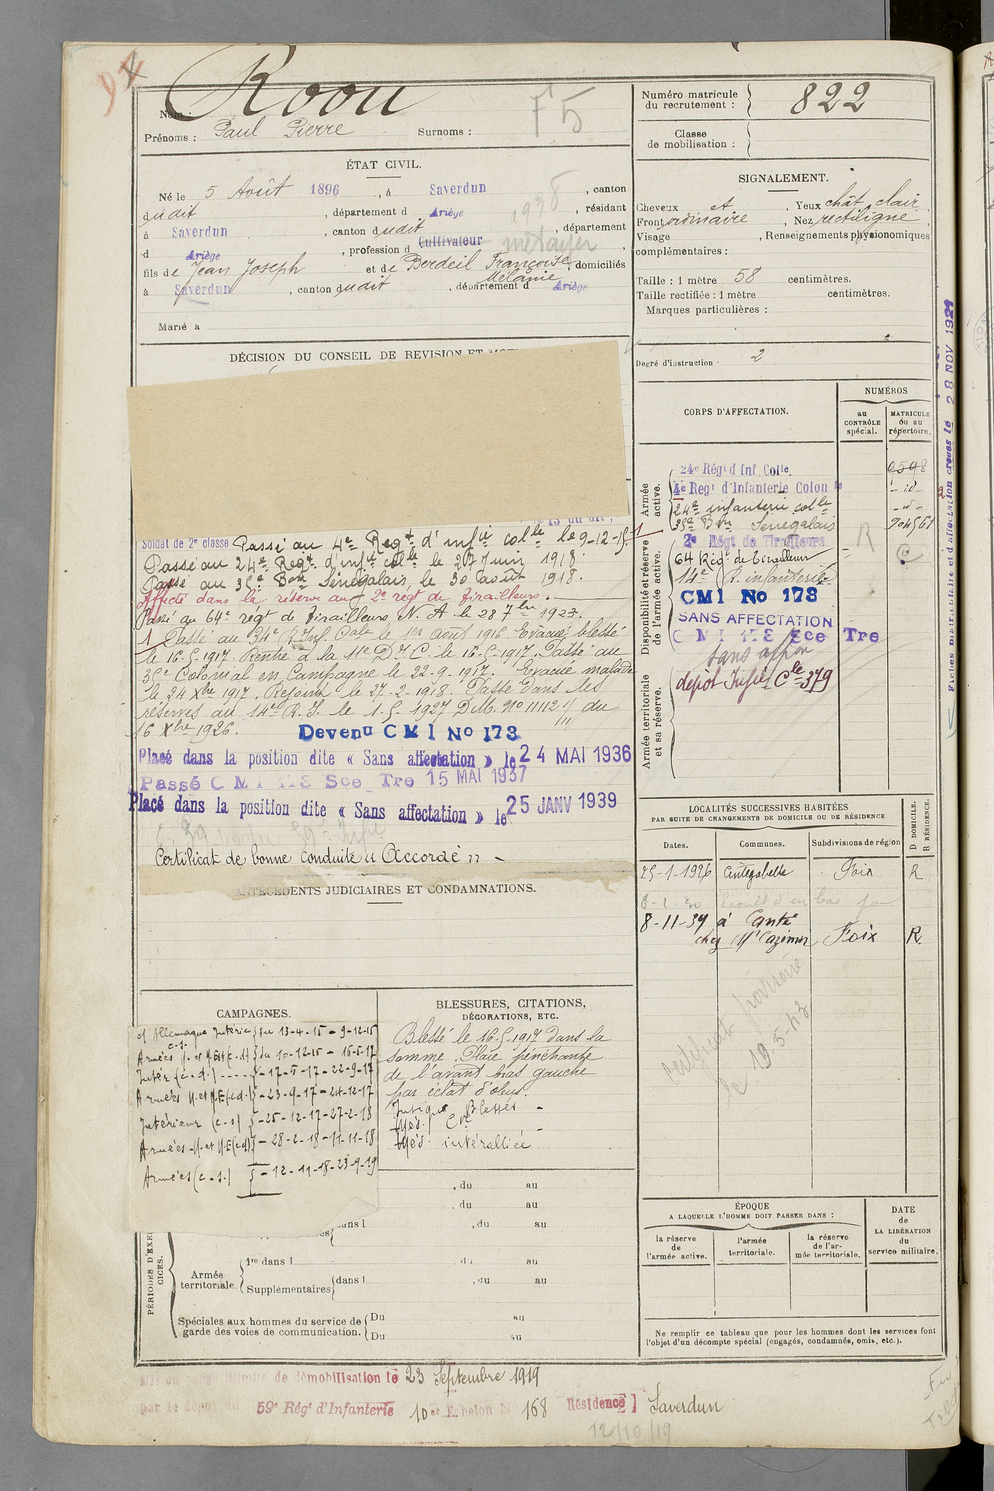 Roou
Nom :
Prénoms : Paul Pierre Surnoms :
75
Numéro matricule du recrutement : 822
Classe de mobilisation :
ÉTAT CIVIL.
Né le 5 Août 1896, à Saverdun, canton
dudit, département d Ariège, résidant
à Saverdun, canton dudit, département
d Ariège, profession d Cultivateur métayer
1938
fils de Jean Joseph et de Berdeil Françoise Mélanie, domiciliés
à Saverdun, canton dudit, département d Ariège
Marié à
SIGNALEMENT.
Cheveux ct. Yeux chât. clair
Front ordinaire, Nez rectiligne
Visage, Renseignements physionomiques
complémentaires :
Taille : 1 mètre 58 centimètres.
Taille rectifiée : 1 mètre centimètres.
Marques particulières :
Degré d'instruction : 2
DÉCISION DU CONSEIL DE REVISION ET
Soldat de 2e classe Passé au 4e Regt d'infie colle le 9-12-15
Passé au 24e Regt d'infie colle le 26 Juin 1918
Passé au 35e Bon Sénégalais, le 30 août 1918.
Affecté dans la réserve au 2e régt de Tirailleurs.
Passé au 64e régt de Tirailleurs N. A le 28 7bre 1923.
1 Passé au 34e R. Inf. Cale le 1er août 1916. Evacué blessé
le 16-5-1917. Rentré à la 11e D.I.C. le 16-5-1917. Passé au
35e Colonial en Campagne le 22-9-1917. Evacué malade
le 24 Xbre 1917. Rejoint le 27-2-1918. Passé dans les
réserves au 14e R.I. le 1-5-1927 D.M. No 11112 du
16 Xbre 1926.
Devenu CMI No 173
Placé dans la position dite « Sans affectation » le 24 MAI 1936
Passé CMI 173 Sce Tre 15 MAI 1937
Placé dans la position dite « Sans affectation » le 25 JANV 1939
Certificat de bonne conduite " Accordé " -
ANTÉCÉDENTS JUDICIAIRES ET CONDAMNATIONS.
CORPS D'AFFECTATION.
NUMÉROS
au CONTRÔLE spécial.
MATRICULE ou au répertoire.
Armée active.
Disponibilité et réserve de l'armée active.
Armée territoriale et sa réserve.
24e Régt d'Inf. Colle. 9598
4e Regt d'Infanterie Colon le - id -
24e infanterie colle - id -
35e Bon Sénégalais
2e Régt de Tirailleurs
64 Régt de tirailleurs
14e R. infanterie
CMI No 173
SANS AFFECTATION
CMI 173 Sce Tre
Sans affon
dépôt Infie Cle 379
R
Fiches matricule et d'affectation créées le 28 NOV 192
LOCALITÉS SUCCESSIVES HABITÉES
PAR SUITE DE CHANGEMENTS DE DOMICILE OU DE RÉSIDENCE
Dates. Communes. Subdivisions de région
D DOMICILE.
R RÉSIDENCE.
25-1-1926 Cintegabelle Foix R
8-11-37 à Canté
chez Mr Cazimer Foix R
le 19.5.43
CAMPAGNES.
ct Allemagne Intérieur du 13-4-15 - 9-12-15
c.s.
Armées N. et N.E (c.d) du 10-12-15 - 16-5-17
Intér (c.d.) - 17-5-17 - 22-9-17
Armées N. et N.E (c.d) - 23-9-17 - 24-12-17
Intérieur (c.s) - 25-12-17 - 27-2-18
Armées N. et N.E (c.d) - 28-2-18 - 11-11-18
Armées (c.s.) - 12-11-18 - 23-9-19
BLESSURES, CITATIONS,
DÉCORATIONS, ETC.
Blessé le 16-5-1917 dans la
Somme. Plaie pénétrante
de l'avant bras gauche
par éclat d'obus.
Insigne Blessés -
Méd. Cve
Méd. interalliée -
, du au
, du au
dans l , du au
PÉRIODES D'EXERCICES.
Armée territoriale.
1re dans l , du au
Supplémentaires dans l , du au
Spéciales aux hommes du service de garde des voies de communication.
Du au
Du au
ÉPOQUE
A LAQUELLE L'HOMME DOIT PASSER DANS :
la réserve de l'armée active.
l'armée territoriale.
la réserve de l'armée territoriale.
DATE de LA LIBÉRATION du service militaire.
Ne remplir ce tableau que pour les hommes dont les services font
l'objet d'un décompte spécial (engagés, condamnés, omis, etc.).
Mis en congé illimité de démobilisation le 23 Septembre 1919
par le dépôt du 59e Régt d'Infanterie 10e Échelon No 168 Résidence Saverdun
12/10/19